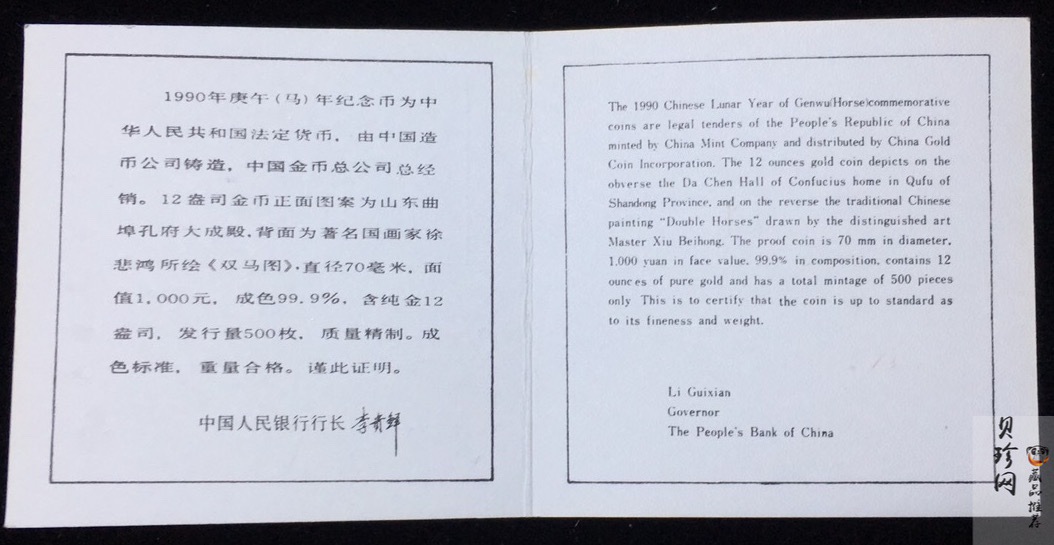 1990年庚午(马)年纪念币为中
华人民共和国法定货币，由中国造
币公司铸造，中国金币总公司总经
销。12盎司金币正面图案为山东曲
埠孔府大成殿，背面为著名国画家徐
悲鸿所绘《双马图》·直径70毫米，面
值1,000元，成色99.9%，含纯金12
盎司，发行量500枚，质量精制。成
色标准，重量合格。谨此证明。
中国人民银行行长 李贵鲜
The 1990 Chinese Lunar Year of Genwu(Horse)commemorative
coins are legal tenders of the People's Republic of China
minted by China Mint Company and distributed by China Gold
Coin Incorporation. The 12 ounces gold coin depicts on the
obverse the Da Chen Hall of Confucius home in Qufu of
Shandong Province, and on the reverse the traditional Chinese
painting "Double Horses" drawn by the distinguished art
Master Xiu Beihong. The proof coin is 70 mm in diameter,
1,000 yuan in face value, 99.9% in composition, contains 12
ounces of pure gold and has a total mintage of 500 pieces
only This is to certify that the coin is up to standard as
to its fineness and weight.
Li Guixian
Governor
The People's Bank of China
贝珍网
藏品推荐